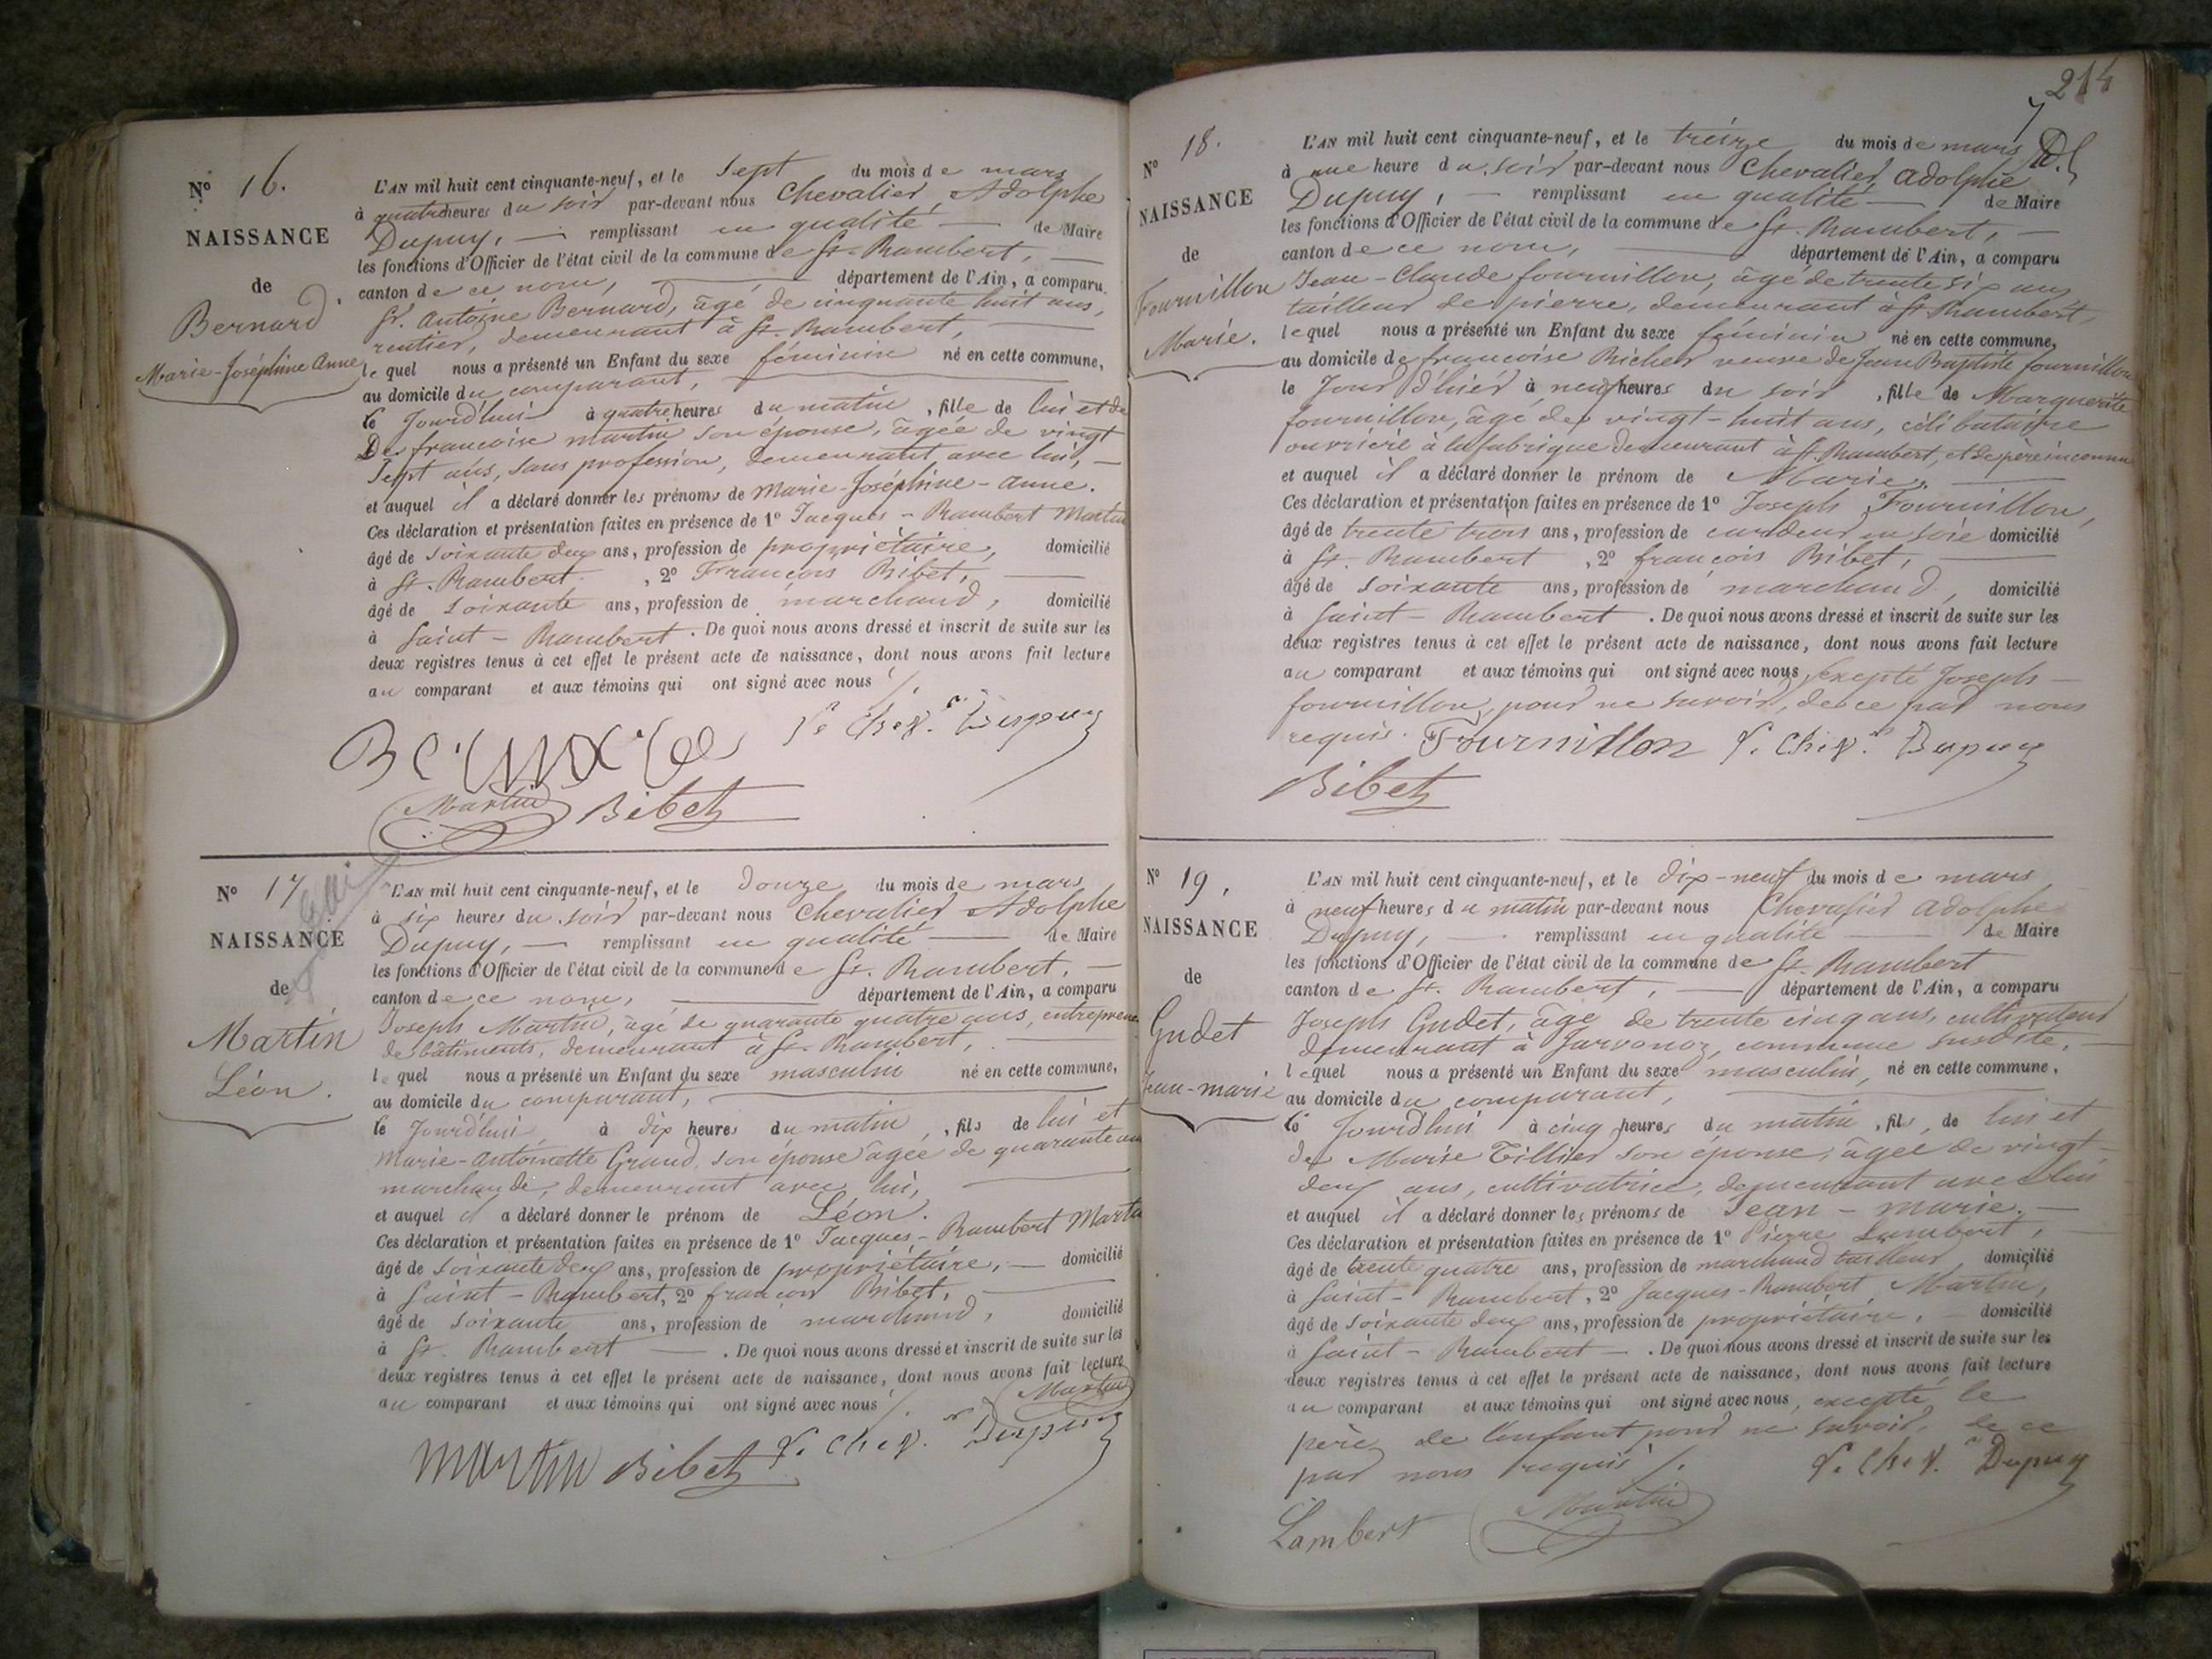 N° 16.
NAISSANCE
de
Bernard
Marie-Joséphine Anne
L'AN mil huit cent cinquante-neuf, et le sept du mois de mars
à quatre heures du soir par-devant nous Chevalier Adolphe
Dupuy, — remplissant en qualité — de Maire
les fonctions d'Officier de l'état civil de la commune de St. Rambert, —
canton de ce nom, — département de l'Ain, a comparu
Sr. Antoine Bernard, âgé de cinquante huit ans,
rentier, demeurant à St. Rambert, —
lequel nous a présenté un Enfant du sexe féminin né en cette commune,
au domicile du comparant, —
le Jourd'hui à quatre heures du matin, fille de lui et de
De françoise martin son épouse, âgée de vingt
sept ans, sans profession, demeurant avec lui, —
et auquel il a déclaré donner les prénoms de Marie-Joséphine-Anne.
Ces déclaration et présentation faites en présence de 1° Jacques-Rambert Martin
âgé de soixante deux ans, profession de propriétaire, domicilié
à St. Rambert, 2° François Bibet, —
âgé de soixante ans, profession de marchand, domicilié
à Saint-Rambert. De quoi nous avons dressé et inscrit de suite sur les
deux registres tenus à cet effet le présent acte de naissance, dont nous avons fait lecture
au comparant et aux témoins qui ont signé avec nous /.
Chev. Dupuy
Martin Bibet
N° 17
NAISSANCE
de
Martin
Léon.
L'AN mil huit cent cinquante-neuf, et le douze du mois de mars
à six heures du soir par-devant nous Chevalier Adolphe
Dupuy, — remplissant en qualité — de Maire
les fonctions d'Officier de l'état civil de la commune de St. Rambert, —
canton de ce nom, — département de l'Ain, a comparu
Joseph Martin, âgé de quarante quatre ans, entrepreneur
de bâtiments, demeurant à St. Rambert, —
lequel nous a présenté un Enfant du sexe masculin né en cette commune,
au domicile du comparant, —
le Jourd'hui à dix heures du matin, fils de lui et
Marie-Antoinette Grand, son épouse âgée de quarante ans
marchande, demeurant avec lui, —
et auquel il a déclaré donner le prénom de Léon.
Ces déclaration et présentation faites en présence de 1° Jacques-Rambert Martin
âgé de soixante deux ans, profession de propriétaire, — domicilié
à Saint-Rambert, 2° françois Bibet, —
âgé de soixante ans, profession de marchand, domicilié
à St. Rambert — . De quoi nous avons dressé et inscrit de suite sur les
deux registres tenus à cet effet le présent acte de naissance, dont nous avons fait lecture
au comparant et aux témoins qui ont signé avec nous /.
Martin
Martin Bibet Chev. Dupuy
214
N° 18.
NAISSANCE
de
Fournillon
Marie.
L'AN mil huit cent cinquante-neuf, et le treize du mois de mars
à une heure du soir par-devant nous Chevalier Adolphe
Dupuy, — remplissant en qualité — de Maire
les fonctions d'Officier de l'état civil de la commune de St. Rambert, —
canton de ce nom, — département de l'Ain, a comparu
Jean-Claude fournillon, âgé de trente six ans
tailleur de pierre, demeurant à St. Rambert,
lequel nous a présenté un Enfant du sexe féminin né en cette commune,
au domicile de françoise Richer veuve de Jean Baptiste fournillon
le Jour d'hier à neuf heures du soir, fille de Marguerite
fournillon, âgé de vingt-huit ans, célibataire
ouvrière à la fabrique demeurant à St. Rambert, et de père inconnu
et auquel il a déclaré donner le prénom de Marie. —
Ces déclaration et présentation faites en présence de 1° Joseph Fournillon,
âgé de trente trois ans, profession de cardeur en soie domicilié
à St. Rambert, 2° françois Bibet, —
âgé de soixante ans, profession de marchand, domicilié
à Saint-Rambert. De quoi nous avons dressé et inscrit de suite sur les
deux registres tenus à cet effet le présent acte de naissance, dont nous avons fait lecture
au comparant et aux témoins qui ont signé avec nous, excepté Joseph
fournillon, pour ne savoir, de ce par nous
requis. Fournillon Chev. Dupuy
Bibet
N° 19,
NAISSANCE
de
Gudet
Jean-marie
L'AN mil huit cent cinquante-neuf, et le dix-neuf du mois de mars
à neuf heures du matin par-devant nous Chevalier Adolphe
Dupuy, — remplissant en qualité — de Maire
les fonctions d'Officier de l'état civil de la commune de St. Rambert
canton de St. Rambert, — département de l'Ain, a comparu
Joseph Gudet, âgé de trente cinq ans, cultivateur
demeurant à Javornoz, commune susdite, —
lequel nous a présenté un Enfant du sexe masculin, né en cette commune,
au domicile du comparant, —
le Jourd'hui à cinq heures du matin, fils, de lui et
de Marie Tillier son épouse, âgée de vingt-
deux ans, cultivatrice, demeurant avec lui
et auquel il a déclaré donner les prénoms de Jean-marie. —
Ces déclaration et présentation faites en présence de 1° Pierre Lambert, —
âgé de trente quatre ans, profession de marchand tailleur domicilié
à Saint-Rambert, 2° Jacques-Rambert Martin,
âgé de soixante deux ans, profession de propriétaire, — domicilié
à Saint-Rambert — . De quoi nous avons dressé et inscrit de suite sur les
deux registres tenus à cet effet le présent acte de naissance, dont nous avons fait lecture
au comparant et aux témoins qui ont signé avec nous, excepté le
père de l'enfant pour ne savoir, de ce
par nous requis /. Chev. Dupuy
Lambert Martin